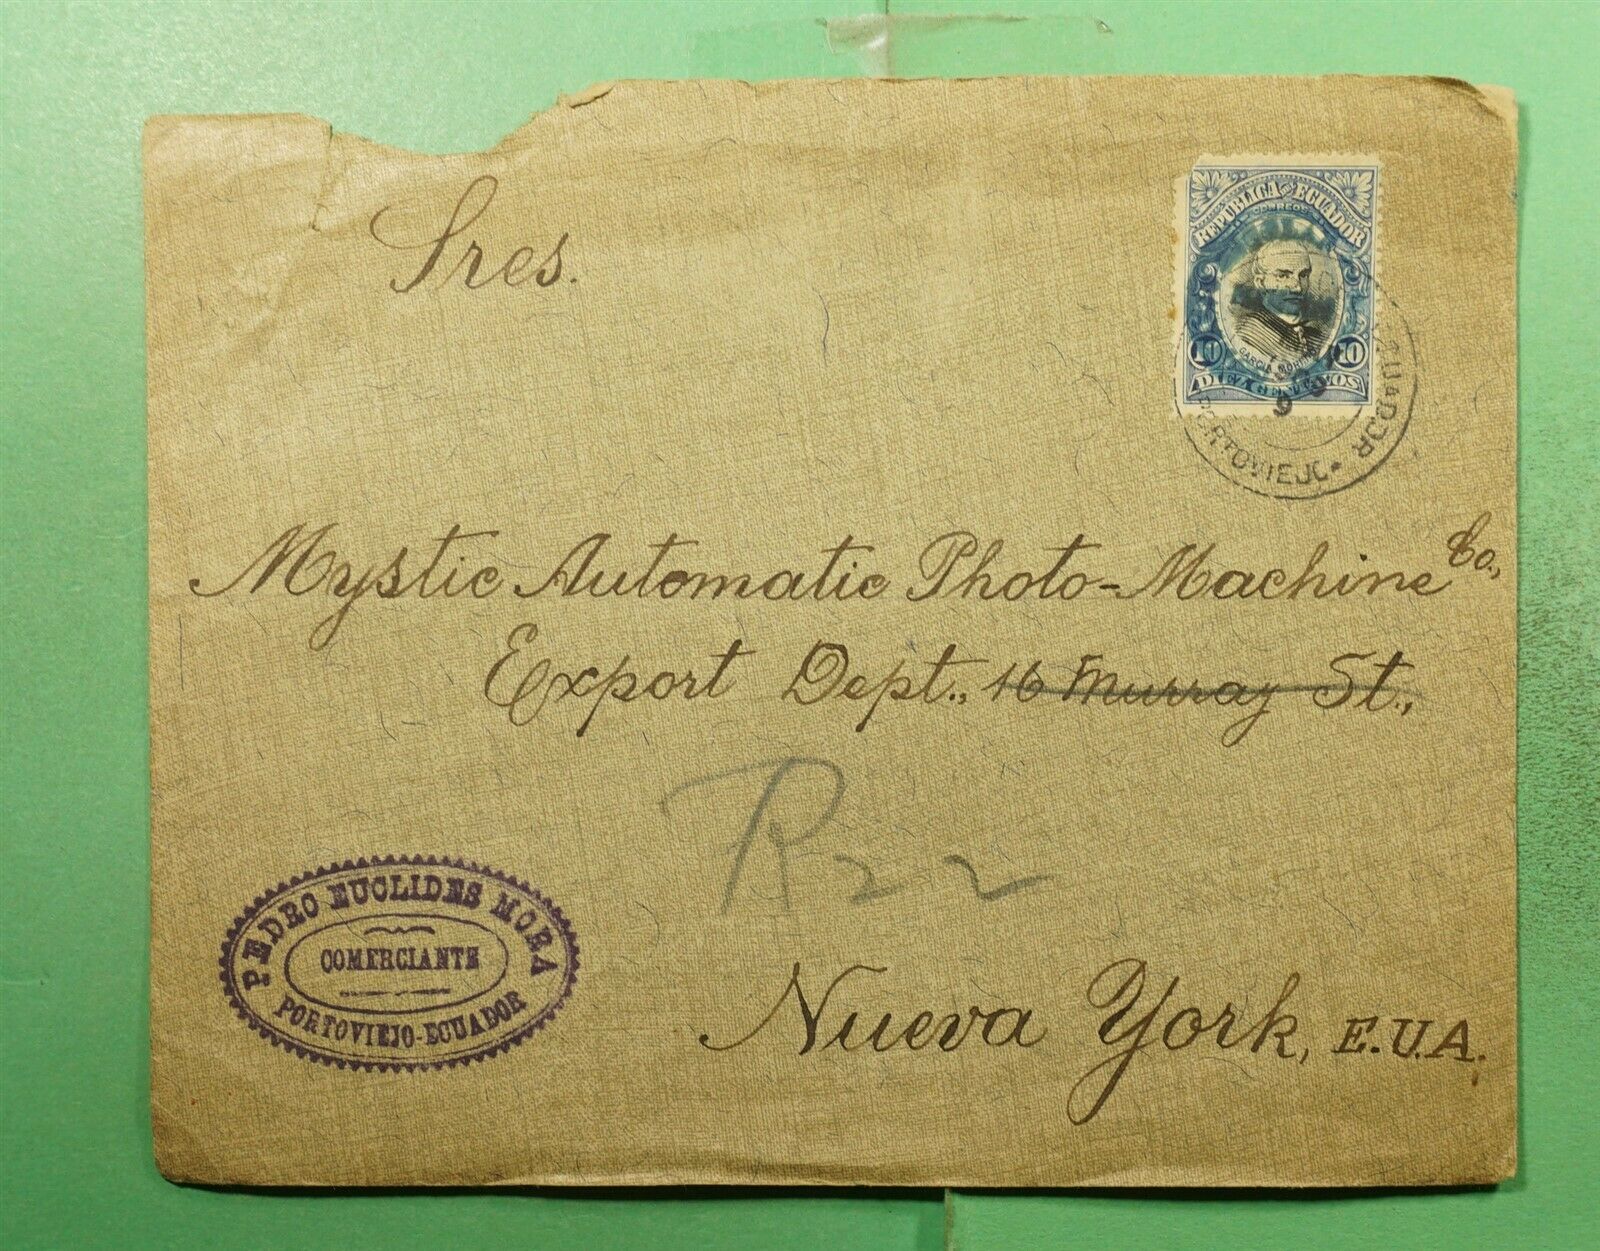 Sres.
REPUBLICA DEL ECUADOR
CORREOS
GARCIA MORENO
10 10
DIEZ CENTAVOS
ECUADOR
PORTOVIEJO *
Mystic Automatic Photo-Machine Co.,
Export Dept., 16 Murray St.,
R 22
PEDRO EUCLIDES MORA
COMERCIANTE
PORTOVIEJO-ECUADOR
Nueva York, E.U.A.